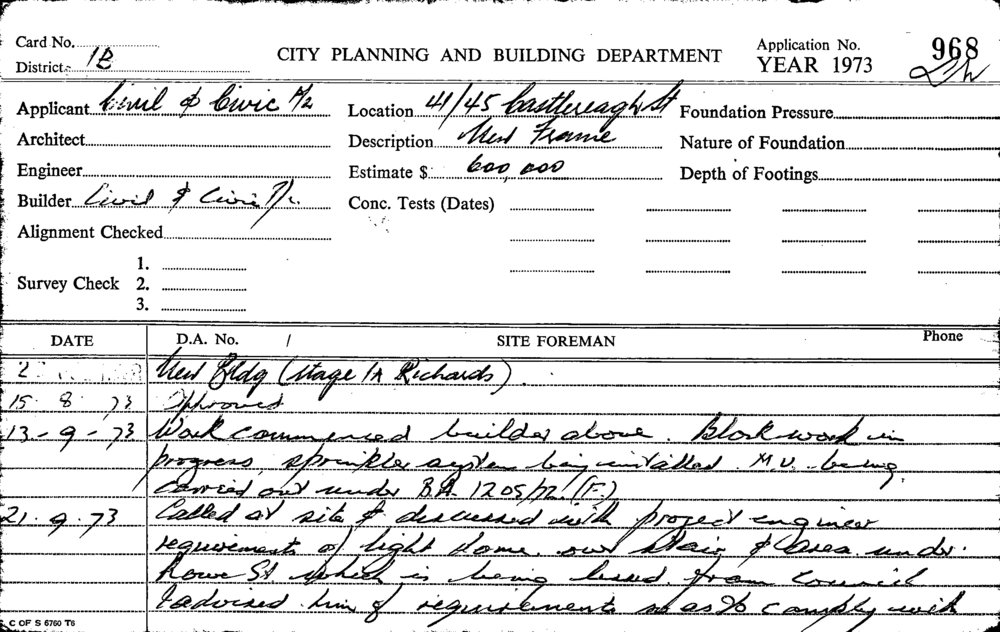 Card No.
District 1B
CITY PLANNING AND BUILDING DEPARTMENT
Application No. 968
YEAR 1973
Applicant Civil & Civic P/L
Location 41/45 Castlereagh St
Foundation Pressure
Architect
Description New Frame
Nature of Foundation
Engineer
Estimate $ 600,000
Depth of Footings
Builder Civil & Civic P/L.
Conc. Tests (Dates)
Alignment Checked
Survey Check 1.
2.
3.
DATE D.A. No. / SITE FOREMAN Phone
2 New Bldg (Stage 1A Richards).
15 8 73 Approved
13-9-73 Work commenced builder above. Blockwork in
progress, sprinkler system being installed. M.V. being
carried out under B.A. 1205/72. (F.)
21.9.73 Called at site & discussed with project engineer
requirements of light dome over stair & area under
Rowe St which is being leased from Council
I advised him of requirements so as to comply with
C OF S 6760 T6